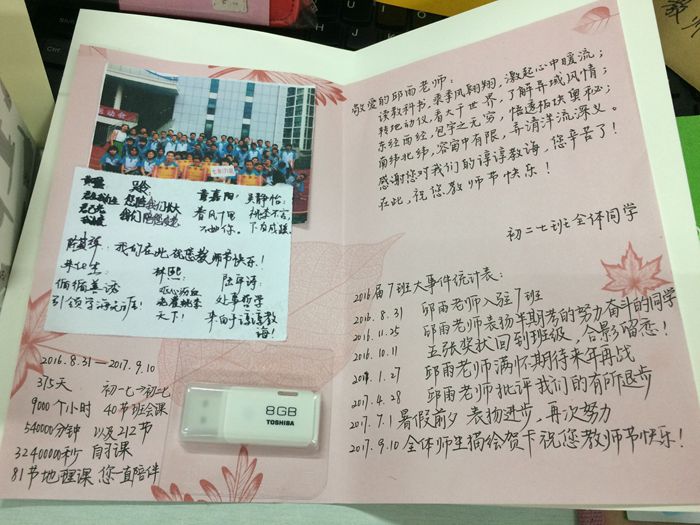 七年(7)班
春风十里
不如你。
桃李不言,
下自成蹊。
我们在此祝您教师节快乐!
循循善诱
引领学海无涯!
林熙:
天下!
处事哲学
来自于谆谆教
诲!
2016.8.31—2017.9.10
375天 初一七→初七
9000个小时 40节班会课
540000分钟 以及212节
32400000秒 自习课
81节地理课 您一直陪伴
8GB
TOSHIBA
敬爱的邱雨老师:
读教科书,乘季风翱翔,激起心中暖流;
转地动仪,看大千世界,了解异域风情;
东经西经,包宇之无穷,悟透板块奥秘;
南纬北纬,容宙中有限,弄清洋流深义。
感谢您对我们的谆谆教诲,您辛苦了!
在此,祝您教师节快乐!
初二七班全体同学
2016届7班大事件统计表:
2016.8.31 邱雨老师入驻7班
2016.11.25 邱雨老师表扬半期考的努力奋斗的同学
2016.10.11 五张奖状回到班级,合影留恋!
2017.1.27 邱雨老师满怀期待来年再战
2017.4.28 邱雨老师批评我们的有所退步
2017.7.1 暑假前夕 表扬进步,再次努力
2017.9.10 全体师生描绘贺卡祝您教师节快乐!